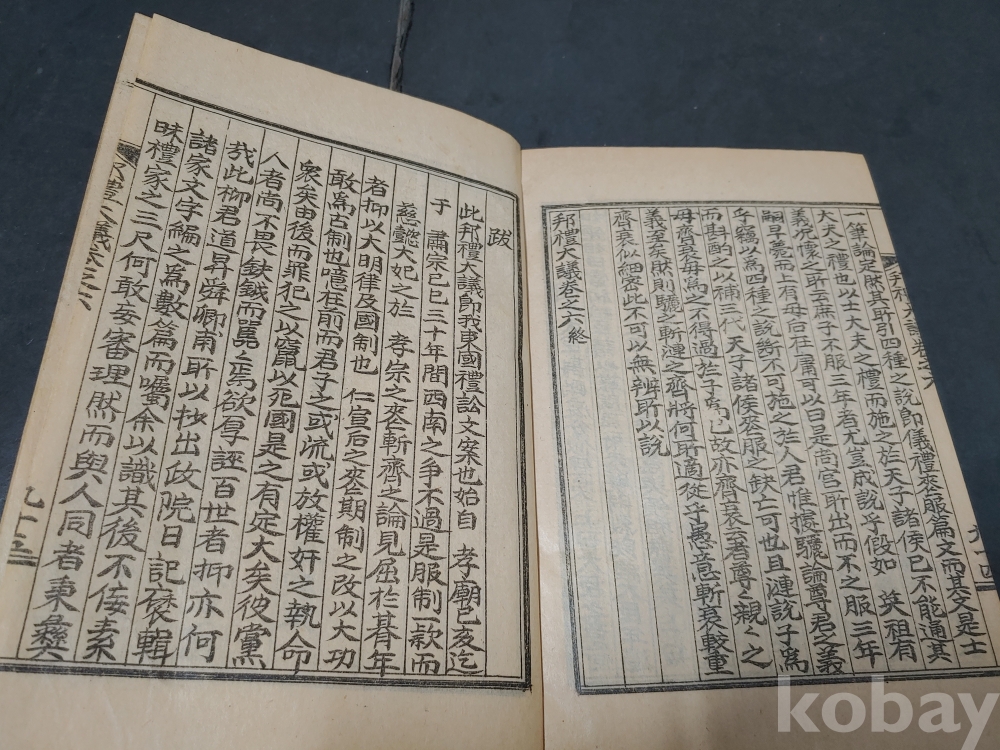 一筆論定然其所引四種之說卽儀禮喪服篇文而其文是士
大夫之禮也以士大夫之禮而施之於天子諸侯已不能通其
義况像之所云庶子不服三年者尤豈成說乎假如 英祖有
嗣早薨而上有母后在肅可以曰是尚宮所出而不之服三年
乎竊以爲四種之說斷不可施之於人君惟據驪論尊君之義
而斟酌之以補三代 天子諸侯喪服之缺亡可也且漣說子爲
母齊衰母爲之不得過於子爲己故亦齊衰云者尊之親之之
義至矣然則驪之斬漣之齊將何所適從乎愚意斬衰較重
齊衰似細密此不可以無辨所以說
邦禮大議卷之六 終
九十四
跋
此邦禮大議卽我東國禮訟文案也始自 孝廟己亥迄
于 肅宗己巳三十年間西南之爭不過是服制一款而
慈懿大妃之於 孝宗之喪斬齊之論見屈於朞年
者抑以大明律及國制也 仁宣后之喪期制之改以大功
敢爲古制也噫在前而君子之或流或放權奸之執命
衆矣由後而罪犯之以竄以死國是之有定大矣彼黨
人者尚不畏鈇鉞而詈之焉欲厚誣百世者抑亦何
哉此柳君道昇舜卿甫所以抄出政院日記裒輯
諸家文字編之爲數篇而囑余以識其後不佞素
昧禮家之三尺何敢妄審理然而與人同者秉彝
禮大議卷之六
九十五
kobay